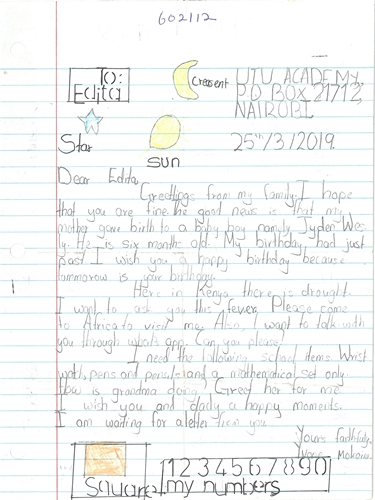 602112
To:
Edita
Crescent
UTU ACADEMY,
P.O BOX 21712,
NAIROBI
Star
sun
25th/3/2019.
Dear Edita,
Greetings from my family. I hope
that you are fine. the good news is that my
mother gave birth to a baby boy namely Jyden Wes-
ly. He is six months old. My birthday had just
past I wish you a happy birthday because
ommorow is your birthday.
Here in Kenya there is drought.
I want to ask you this fewer. Please come
to Africa to visit me. Also, I want to talk with
you through whats app. Can you please?
I need the following school items. Wrist
watch, pens and pencil and a mathematical set only
How is grandma doing. Greet her for me.
I wish you and dady a happy moments.
I am waiting for a letter from you
Yours faithfully
Square
1234567890
my numbers